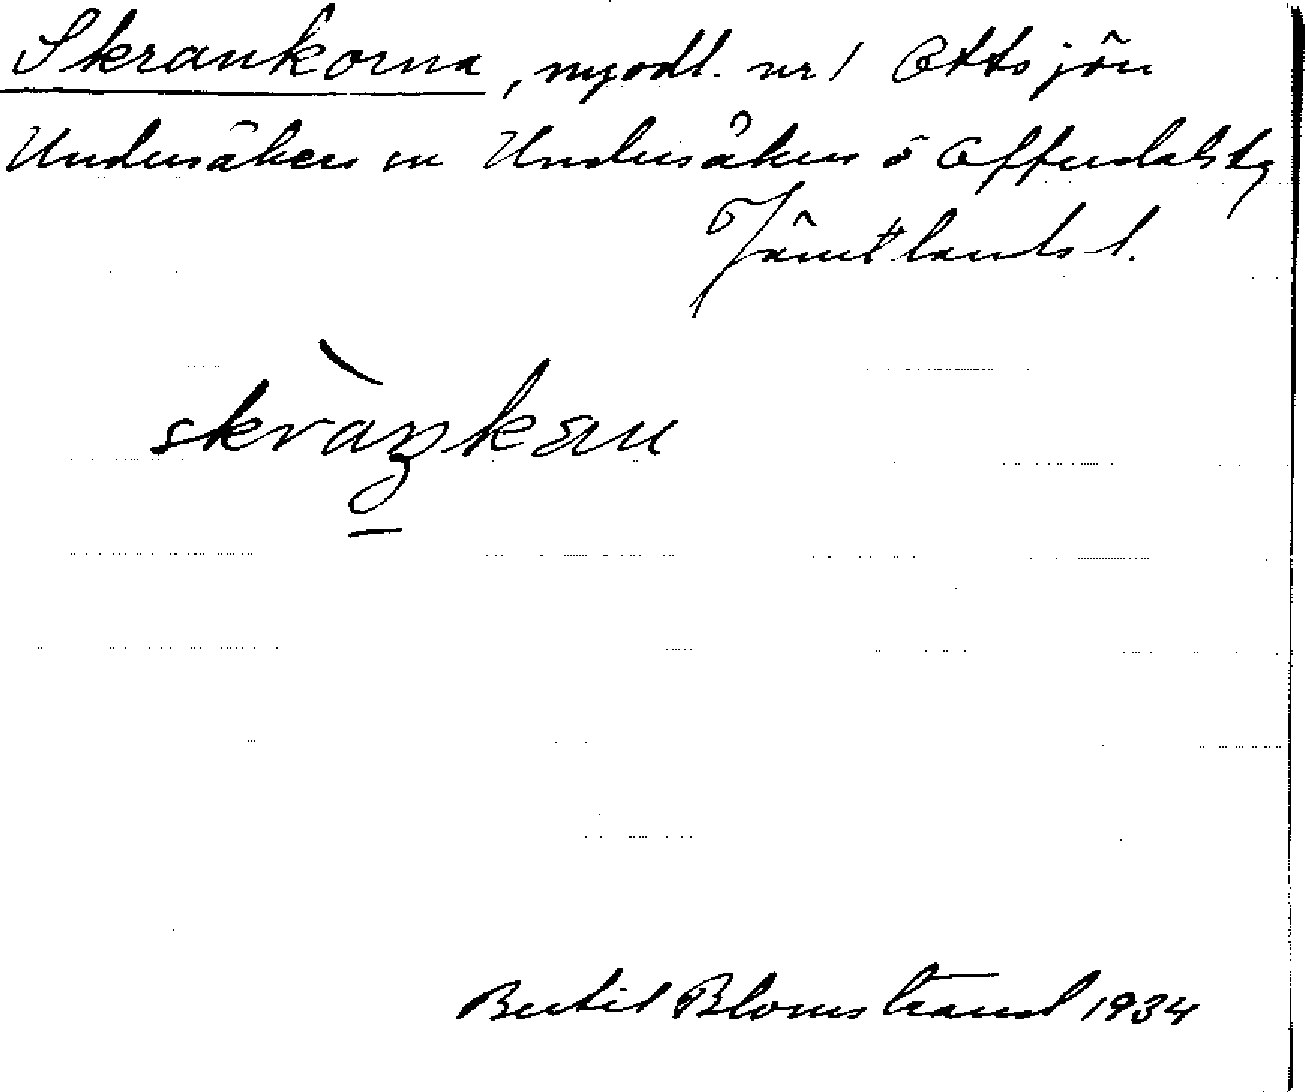 Skrankorna, nyodl. nr 1 Ottsjön
Undersåkers sn Undersåkers o Offerdals tg
Jämtlands l.
Bertil Blomstrand 1934